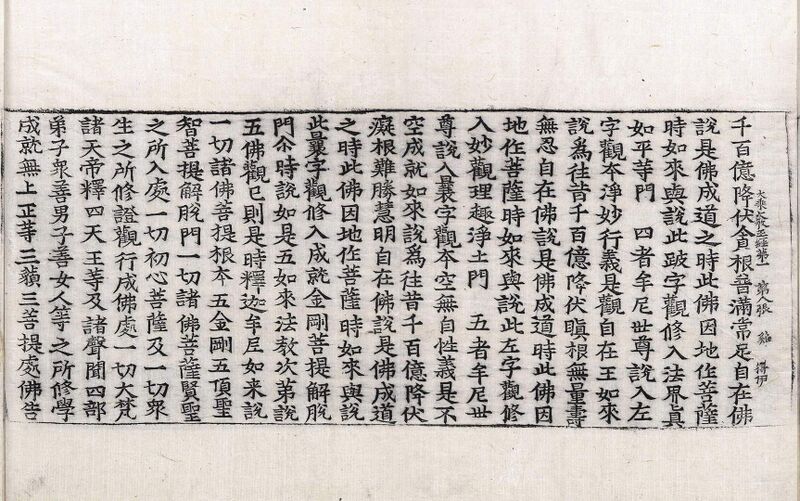 千百億降伏貪根普滿常足自在佛
第八張
說是佛成道之時此佛因地作菩薩
時如來與說此跛字觀修入法界真
如平等門 四者牟尼世尊說入左
字觀夲淨妙行義是觀自在王如來
說為往昔千百億降伏瞋根無量壽
無忍自在佛說是佛成道時此佛因
地作菩薩時如來與說此左字觀修
入妙觀理趣淨土門 五者牟尼世
尊說入曩字觀夲空無自性義是不
空成就如來說為往昔千百億降伏
癡根難勝慧明自在佛說是佛成道
之時此佛因地作菩薩時如來與說
此曩字觀修入成就金剛菩提解脫
門尒時說如是五如來法教次第說
五佛觀已則是時釋迦牟尼如来說
一切諸佛菩提根夲五金剛五頂聖
智菩提解脫門一切諸佛菩薩賢聖
之所入處一切初心菩薩及一切眾
生之所修證觀行成佛處一切大梵
諸天帝釋四天王等及諸聲聞四部
弟子眾善男子善女人等之所修學
成就無上正等三藐三菩提處佛告